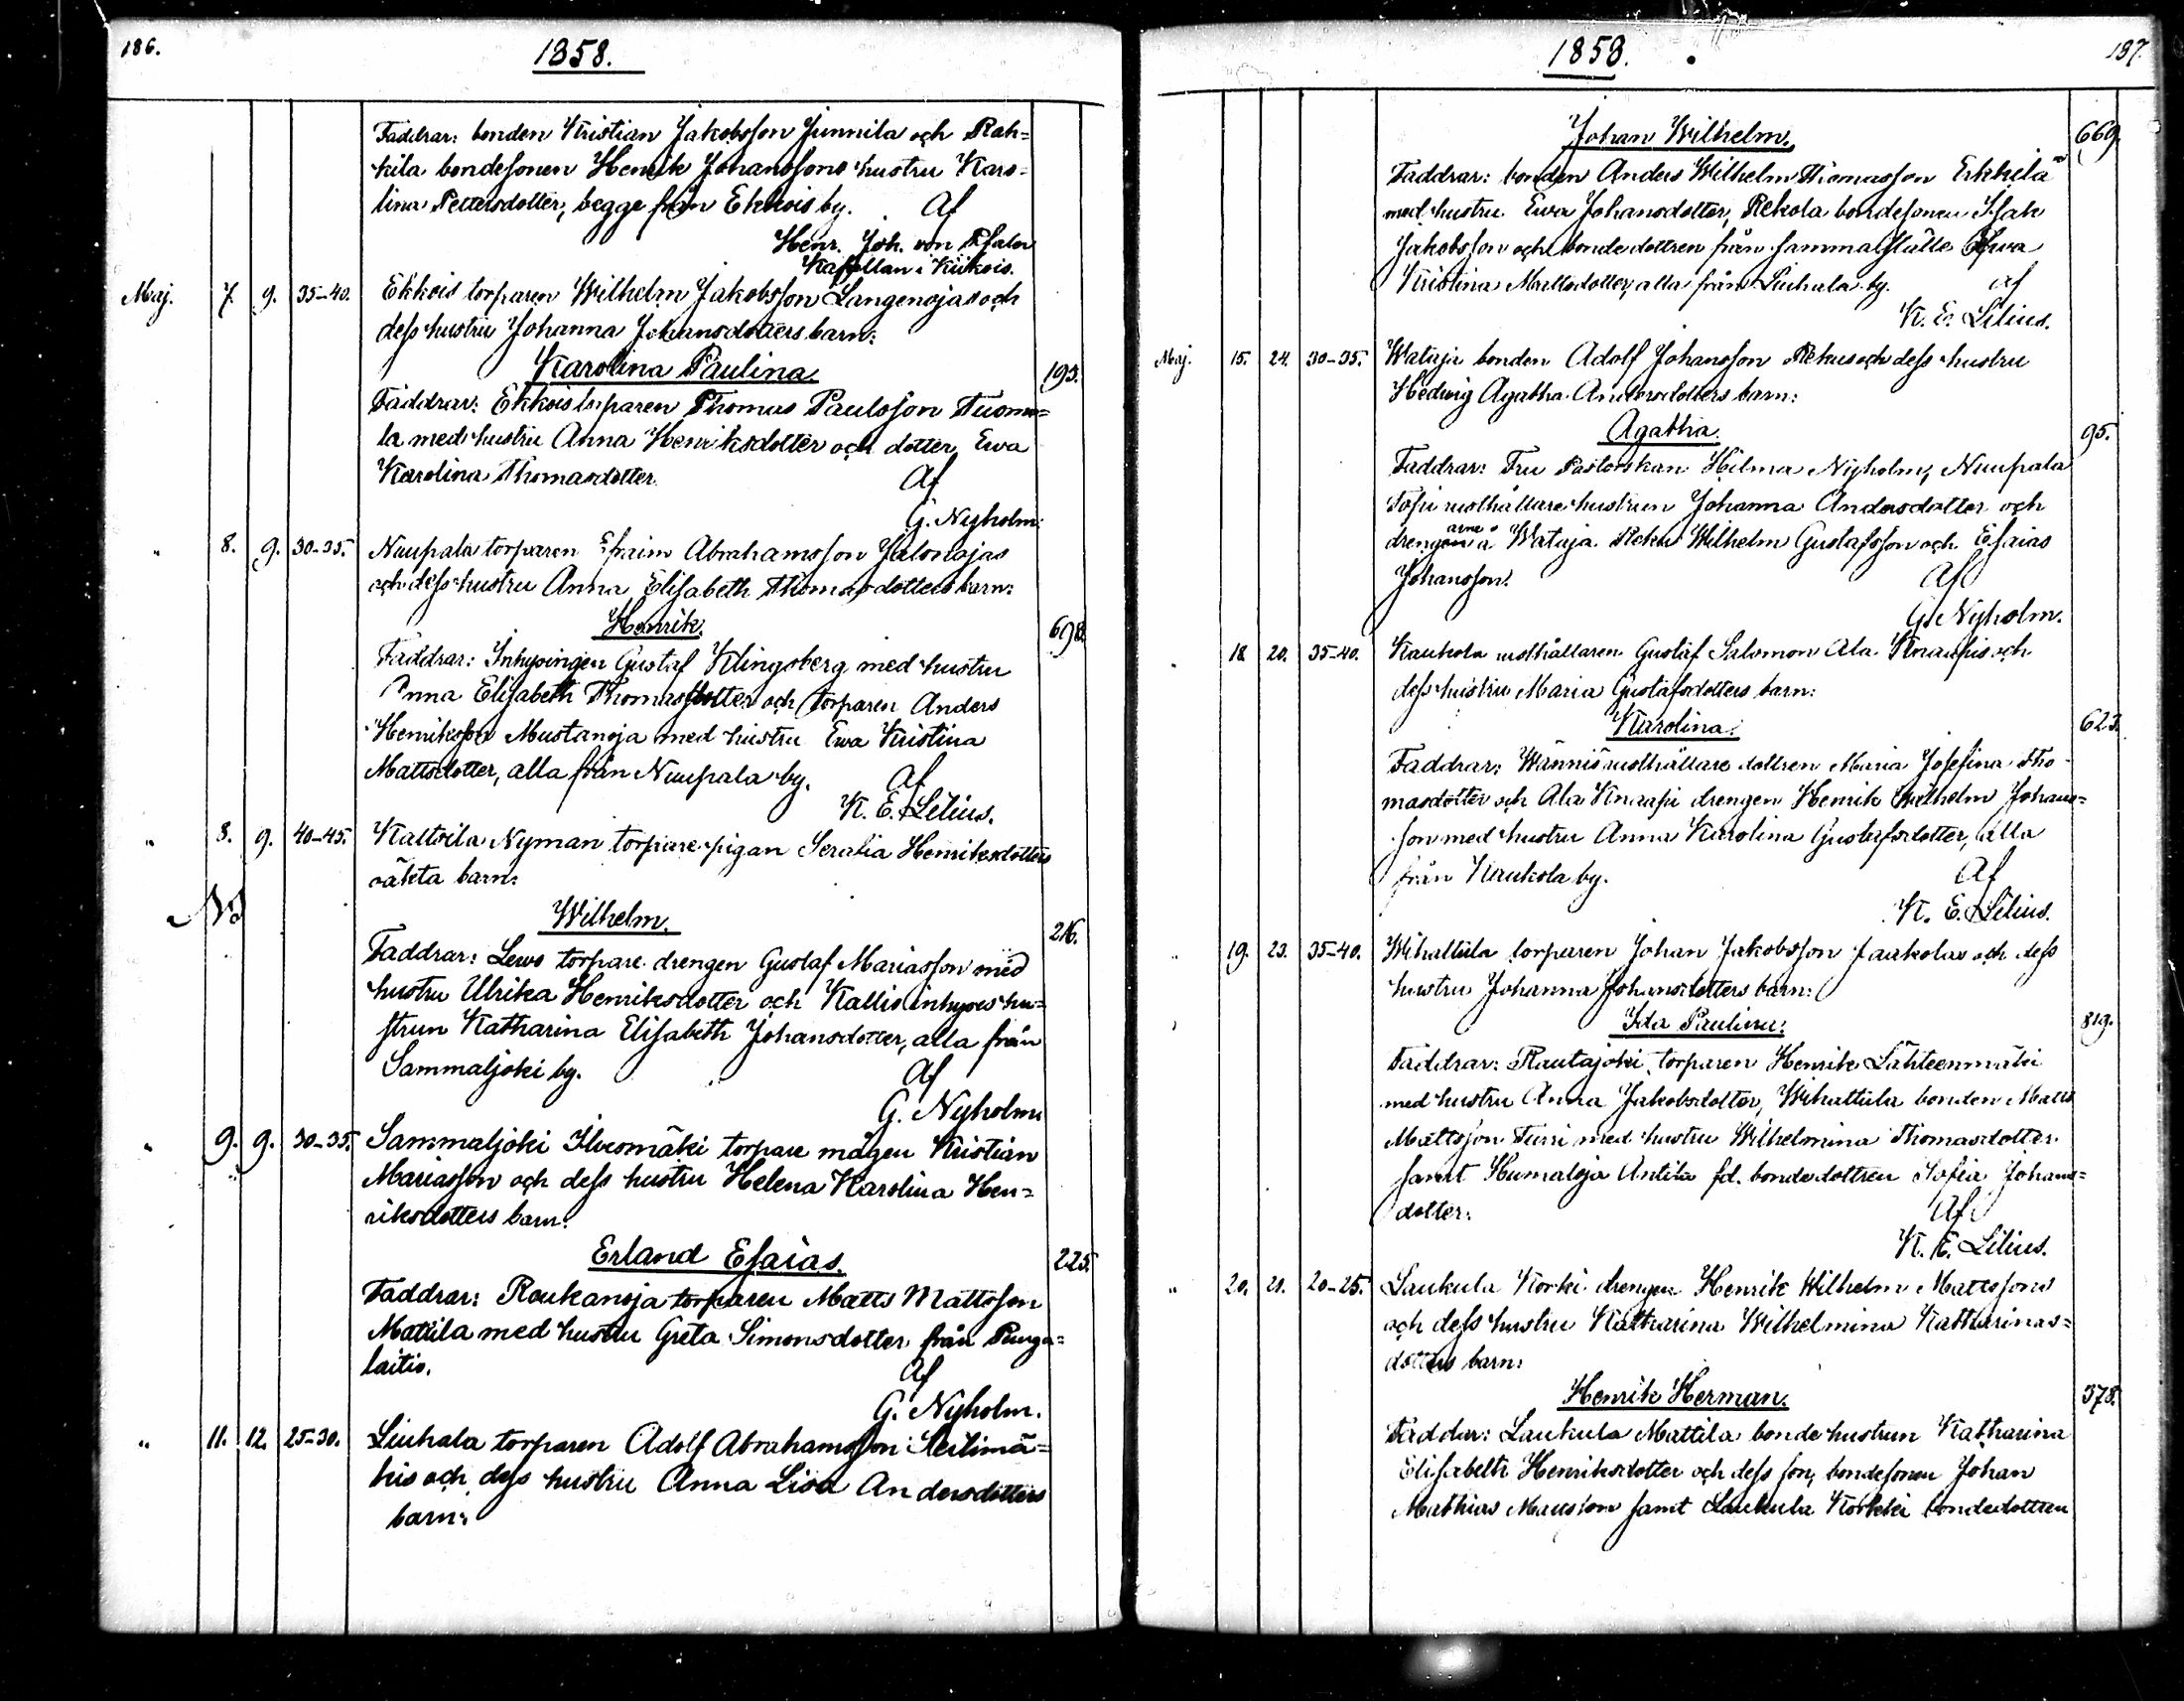 186.
1858.
Faddrar: bonden Kristian Jakobsson Junnila och Rah=
kila bondesonen Henrik Johanssons hustru Karo=
lina Pettersdotter, begge från Ekkois by. Af
Henr. Joh. von Pfaler
Kapellan i Kiikois.
Maj. 7. 9. 35-40. Ekkois torparen Wilhelm Jakobsson Langenojas och
dess hustru Johanna Johansdotters barn:
Karolina Paulina. 195.
Faddrar: Ekkois torparen Thomas Paulsson Tuomo=
la med hustru Anna Henriksdotter och dotter Ewa
Karolina Thomasdotter. Af
G. Nyholm.
" 8. 9. 30-35. Nuupala torparen Efraim Abrahamsson Jalonojas
och dess hustru Anna Elisabeth Thomasdotters barn:
Henrik. 698.
Faddrar: Inhysingen Gustaf Klingsberg med hustru
Anna Elisabeth Thomasdotter och torparen Anders
Henriksson Mustanoja med hustru Ewa Kristina
Mattsdotter, alla från Nuupala by. Af
K. E. Lilius.
" 8. 9. 40-45. Kaltsila Nyman torpare pigan Serafia Henriksdotters
oäkta barn:
Wilhelm. 216.
Faddrar: Lewo torpare drengen Gustaf Mariasson med
hustru Ulrika Henriksdotter och Kallis inhyses hu=
strun Katharina Elisabeth Johansdotter, alla från
Sammaljoki by. Af
G. Nyholm
" 9. 9. 30-35. Sammaljoki Ilvesmäki torpare mågen Kristian
Mariasson och dess hustru Helena Karolina Hen=
riksdotters barn:
Erland Esaias. 225.
Faddrar: Roukanoja torparen Matts Mattsson
Mattila med hustru Greta Simonsdotter från Punga=
laitio. Af
G. Nyholm.
" 11. 12. 25-30. Liuhala torparen Adolf Abrahamsson
kis och dess hustru Anna Lisa Andersdotters
barn:
1858.
187.
Johan Wilhelm. 669.
Faddrar: bonden Anders Wilhelm Thomasson Erkkilä
med hustru Ewa Johansdotter, Rekola bondesonen Isak
Jakobsson och bonde dottren från samma ställe Ewa
Kristina Mattsdotter, alla från Liuhala by. af
K. E. Lilius.
Maj. 15. 24. 30-35. Wataja bonden Adolf Johansson Rekus och dess hustru
Hedwig Agatha Andersdotters barn:
Agatha. 95.
Faddrar: Fru Pastorskan Hilma Nyholm, Nuupala
rusthållare hustrun Johanna Andersdotter och
arne
drengen å Wataja Reku Wilhelm Gustafsson och Esaias
Johansson. Af
G. Nyholm.
" 18. 20. 35-40. Kaukola rusthållaren Gustaf Salomon Ala Knaapis och
dess hustru Maria Gustafsdotters barn:
Karolina. 623.
Faddrar: Wännis rusthållare dottren Maria Josefina Tho=
masdotter och Ala Knaapi drengen Henrik Wilhelm Johans=
son med hustru Anna Karolina Gustafsdotter, alla
från Kaukola by. Af
K. E. Lilius.
" 19. 23. 35-40. Wihattula torparen Johan Jakobsson Jaakolas och dess
hustru Johanna Johansdotters barn:
Ida Paulina: 819.
Faddrar: Rautajoki torparen Henrik Lähteenmäki
med hustru Anna Jakobsdotter, Wihattula bonden Matts
Mattsson Turri med hustru Wilhelmina Thomasdotter
samt Humaloja Antila fd. bondedottren Sofia Johans=
dotter. Af
K. E. Lilius.
" 20. 21. 20-25. Laukula Korki drengen Henrik Wilhelm Mattssons
och dess hustru Katharina Wilhelmina Katharinas=
dotters barn:
Henrik Herman. 578.
Faddrar: Laukula Mattila bonde hustrun Katharina
Elisabeth Henriksdotter och dess son, bondesonen Johan
Mathias Mattsson samt Laukula Korkki bondedottren